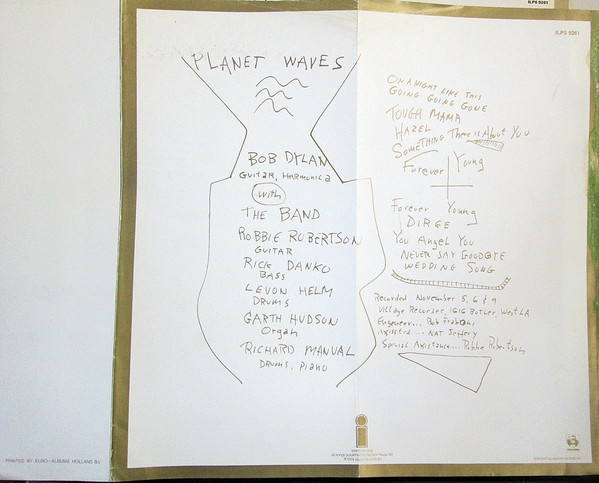 ILPS 9261
ILPS 9261
PLANET WAVES
BOB DYLAN
GUITAR, HARMONICA
with
THE BAND
ROBBIE ROBERTSON
GUITAR
RICK DANKO
BASS
LEVON HELM
DRUMS
GARTH HUDSON
Organ
RICHARD MANUAL
DRUMS, PIANO
ON A NIGHT LIKE THIS
GOING GOING GONE
TOUGH MAMA
HAZEL
SOMETHING There is About You
Forever Young
Forever Young
DIRGE
You Angel You
NEVER SAY GOODBYE
WEDDING SONG
Recorded November 5, 6 & 9
Village Recorder, 1616 Butler, West LA
Engineer... Rob Fraboni
Assisted... NAT Jeffery
Special Assistance... Robbie Robertson
PRINTED BY EURO-ALBUMS HOLLAND B.V.